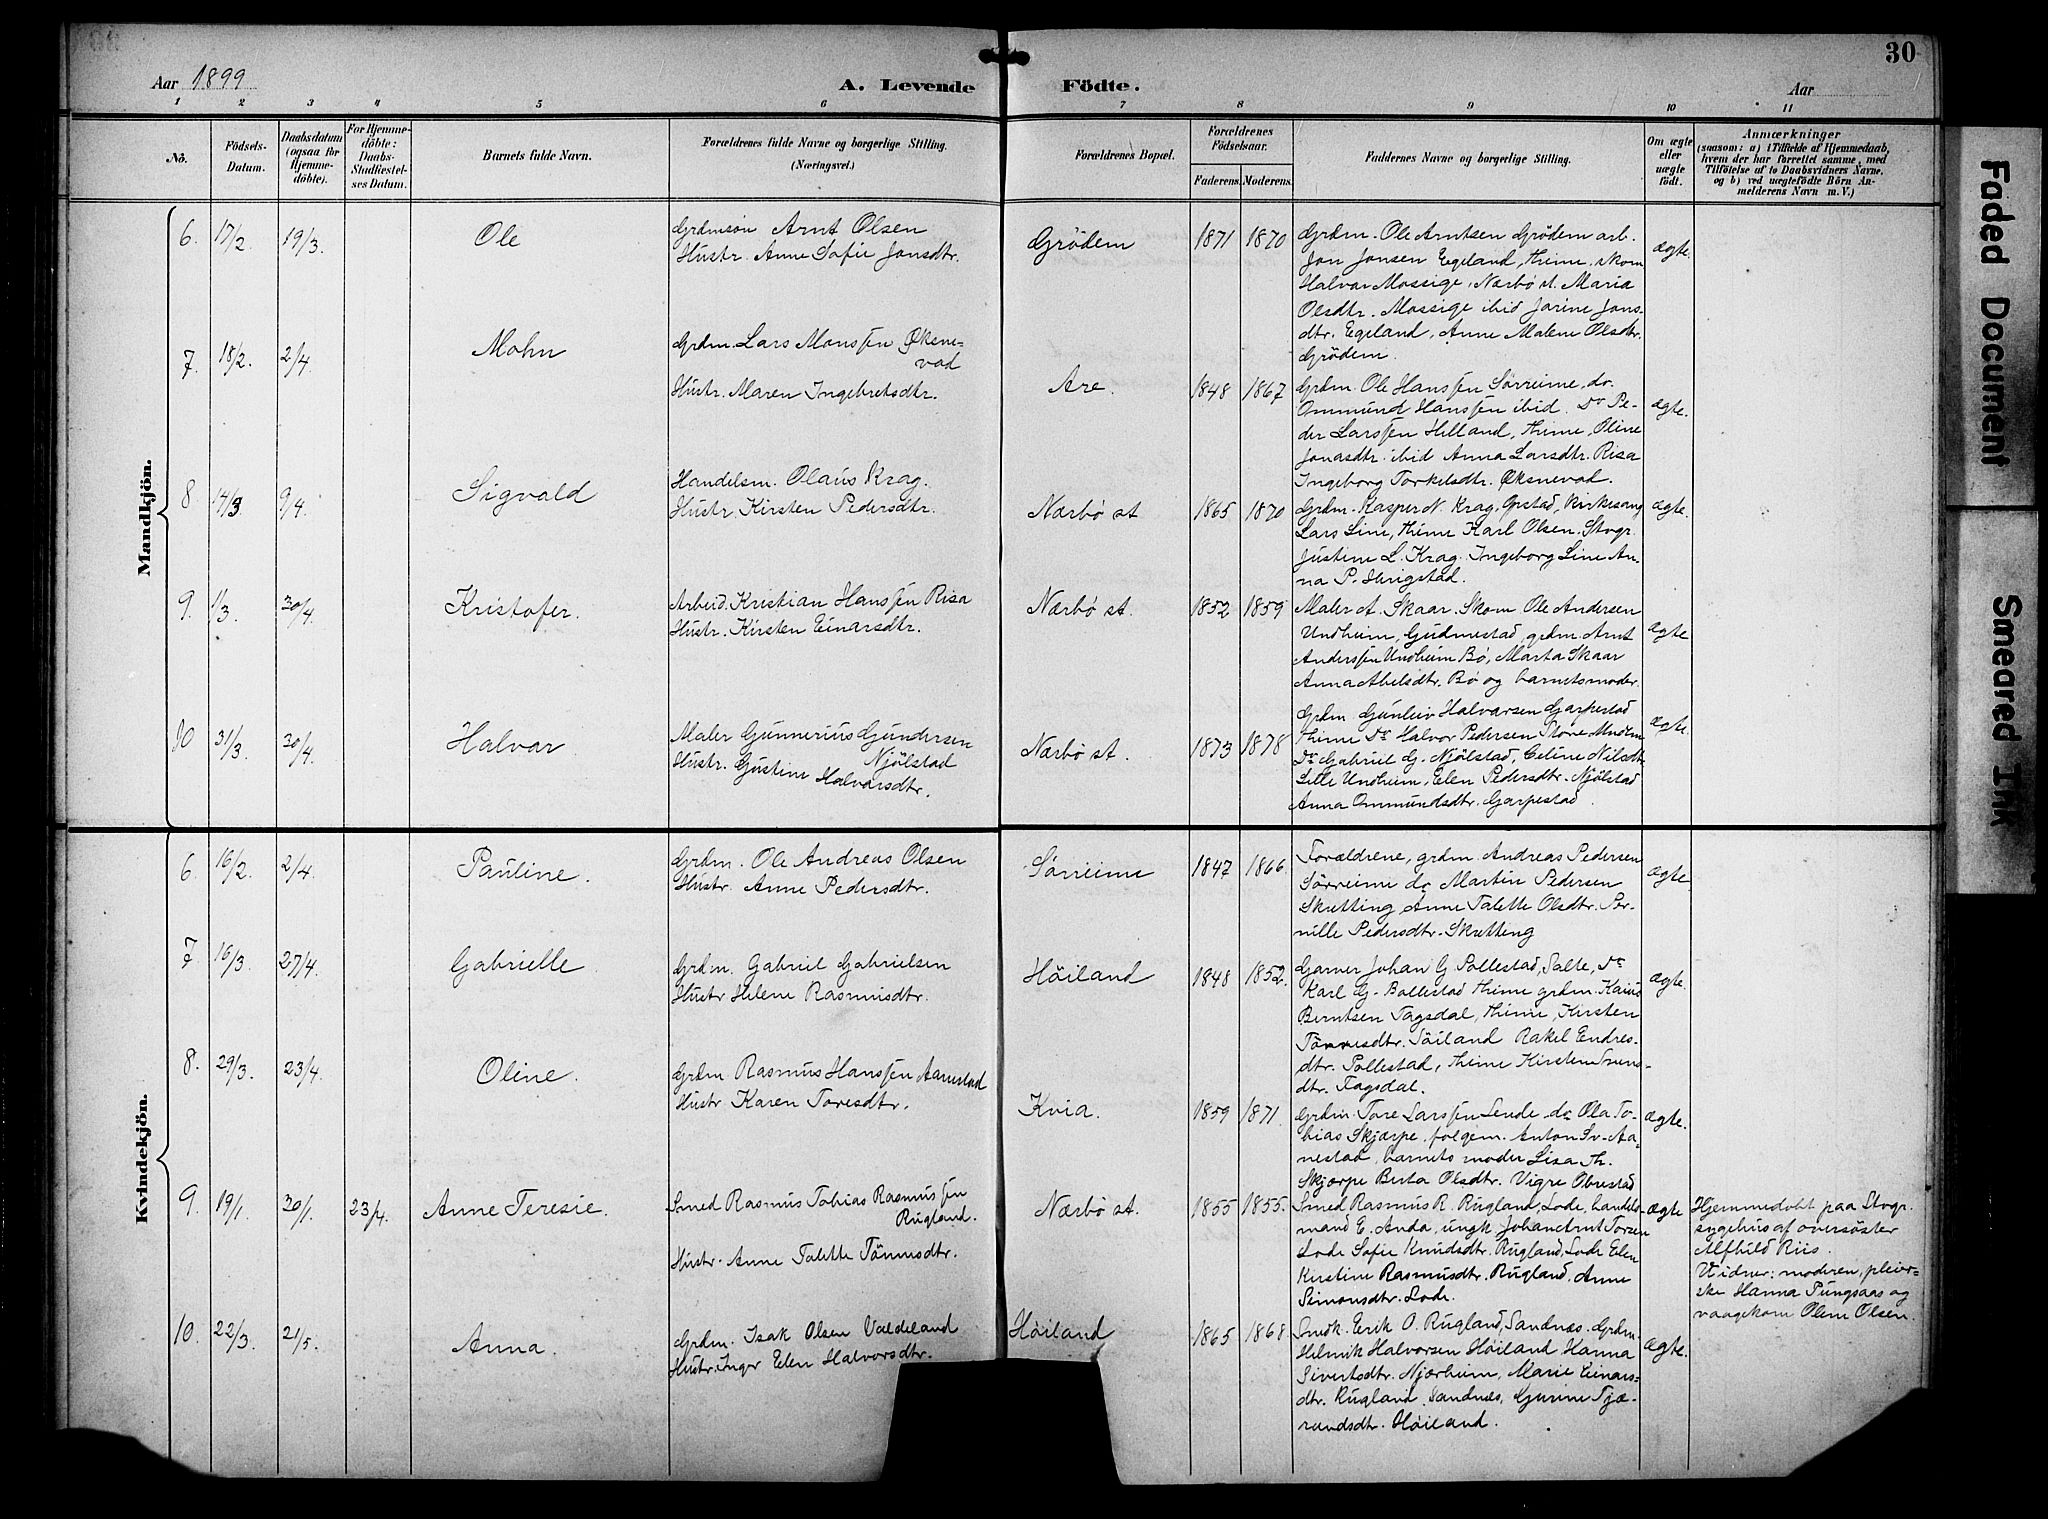 30
Aar 1899
A. Levende Födte.
Aar
1 2 3 4 5 6 7 8 9 10 11
No.
Födsels-Datum.
Daabsdatum (ogsaa for Hjemmedöbte).
For Hjemmedöbte: Daabs-Stadfæstelses Datum.
Barnets fulde Navn.
Forældrenes fulde Navne og borgerlige Stilling.
(Næringsvei.)
Forældrenes Bopæl.
Forældrenes Födselsaar.
Faderens. Moderens.
Faddernes Navne og borgerlige Stilling.
Om ægte eller uægte födt.
Anmærkninger
(saasom: a) i Tilfælde af Hjemmedaab,
hvem der har forrettet samme, med
Tilföielse af to Daabsvidners Navne.
og b) ved uægtefödte Börn An-
melderens Navn m. V.)
Mandkjön.
6. 17/2 19/3. Ole
Grdmsön Arnt Olsen
Hustr. Anne Sofie Jonsdtr.
Grödem 1871 1870
Grdm. Ole Arntsen Grödem arb.
Jon Jonsen Egeland, Thime. skom
Halvar Mossige, Nærbö st. Maria
Olsdtr. Mossige ibid Jorine Jons-
dtr. Egeland, Anne Malene Olsdtr.
Grödem.
ægte.
7. 18/2. 2/4. Mohn
Grdm. Lars Monssen Øksne-
vad
Hustr. Maren Ingebretsdtr.
Are. 1848 1867
Grdm. Ole Hanssen Sörreime, do.
Ommund Hanssen ibid. Do Pe-
der Larssen Helland, Thime, Oline
Jonasdtr. ibid Anna Larsdtr. Risa
Ingeborg Torkelsdtr. Øksnevad.
ægte.
8 14/3 9/4. Sigvald
Handelsm. Olaus Krag.
Hustr. Kirsten Pedersdtr.
Nærbö st 1865 1870
Grdm. Kasper N. Krag, Opstad, Kirkesang
Lars Line, Thime Karl Olsen. Stvgr.
Justine L. Krag. Ingeborg Line An-
na P. Hrigstad.
ægte.
9. 1/3. 30/4. Kristofer.
Arbeid. Kristian Hanssen Risa
Hustr. Kirsten Einarsdtr.
Nærbö st. 1852 1859
Maler A. Skaar. Skom Ole Andersen
Undheim, Gudmestad, grdm. Arnt
Anderssen Undheim Bö, Marta Skaar
Anna Abelsdtr. Bö og barnets moder.
ægte
10 31/3 30/4. Halvar
Maler Gunnerius Gundersen
Njölstad
Hustr. Gustine Halvarsdtr.
Nærbö st. 1873 1878
Grdm Gunleiv Halvarsen Garpestad
Thime Do Halvor Pedersen Store Undhm
Do Gabriel G. Njölstad, Celine Nilsdtr
Lille Undheim, Elen Pedersdtr. Njölstad
Anna Ommundsdtr. Garpestad.
ægte.
Kvindekjön.
6. 16/2. 2/4. Pauline.
Grdm. Ole Andreas Olsen
Hustr. Anne Pedersdtr.
Sörreime 1847 1866
Forældrene, grdm. Andreas Pedersen
Sörreime do Martin Pedersen
Skretting Anne Talette Olsdtr. Per-
nille Pedersdtr. Skretting
ægte
7 16/3. 27/4. Gabrielle
Grdm. Gabriel Gabrielsen
Hustr Helene Rasmusdtr.
Höiland 1848 1852.
Garver Johan G. Pollestad, Salte, Do
Karl G. Bollestad Thime grdm. Kaius
Berntsen Tagsdal, Thime, Kirsten
Tönnesdtr. Töiland Rakel Endres-
dtr. Pollestad, Thime Kirsten Svens-
dtr. Tagsdal.
ægte.
8. 29/3. 23/4. Oline.
Grdm Rasmus Hanssen Aanestad
Hustr Karen Toresdtr.
Kvia. 1859 1871.
Grdm. Tore Larssen Lende. do Ola To-
bias Skjærpe, følgem. Anton Sv. Aa-
nestad, barnets moder Lisa Th.
Skjærpe Berta Olsdtr. Vigre Obrestad
ægte.
9. 19/1. 30/1. 23/4. Anne Teresie.
Smed Rasmus Tobias Rasmussen
Rugland.
Hustr. Anne Talette Tönnesdtr.
Nærbö st. 1855 1855.
Smed Rasmus R. Rugland, Lode, handels
mand E. Anda, ungk. Johan Arnt Torsen
Lode Sofie Knudsdtr. Rugland, Lode Elen
Kirstine Rasmusdtr. Rugland, Anne
Simonsdtr. Lode.
ægte
Hjemmedöbt paa Stvgr.
sygehus af oversöster
Alfhild Riis.
Vidner: moderen, pleier-
ske Hanna Pungsaas og
vaagekom Oline Olsen.
10. 22/3. 21/5. Anna.
Grdm. Isak Olsen Valdeland
Hustr. Inger Elen Halvorsdtr.
Höiland 1865 1868
Smdk. Erik O. Rugland, Sandnæs. Grdm.
Helmik Halvorsen Höiland Hanna
Sivertsdtr. Njærheim, Marie Einars-
dtr. Rugland Sandnæs, Gurine Tjæ-
randsdtr. Höiland.
ægte.
Faded Document
Smeared Ink